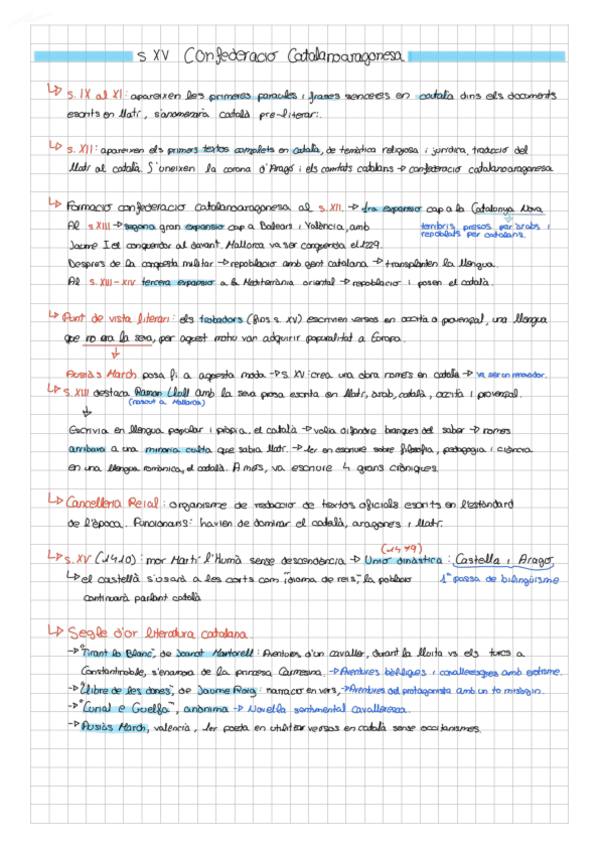 S XV Confederació Catalanoaragonesa
↳ s. IX al XI: apareixen les primeres paraules i frases senceres en català dins els documents
escrits en llatí, s'anomenaria català pre-literari.
↳ s. XII: apareixen els primers textos complets en català, de temàtica religiosa i jurídica, traducció del
llatí al català. S'uneixen la corona d'Aragó i els comtats catalans → confederació catalanoaragonesa
↳ Formació confederació catalanoaragonesa al s. XII. → 1ra expansió cap a la Catalunya Nova
Al s XIII → segona gran expansió cap a Balears i València, amb
territoris presos per àrabs i
repoblats per catalans.
Jaume I el conqueridor al davant. Mallorca va ser conquerida el 1229.
Despres de la conquesta militar → repoblació amb gent catalana → transplanten la llengua.
Al s. XIII - XIV tercera expansió a la Mediterrània oriental → repoblació i posen el català.
↳ Punt de vista literari: els trobadors (fins s. XV) escrivien versos en occità o provençal, una llengua
que no era la seva, per aquest motiu van adquirir popularitat a Europa.
Ausiàs March posa fi a aquesta moda → s. XV: crea una obra només en català → va ser un renovador.
↳ s. XIII destaca Ramon Llull amb la seva prosa escrita en llatí, àrab, català, occità i provençal.
(nascut a Mallorca)
Escrivia en llengua popular i pròpia. el català → volia difondre branques del saber → només
arribava a una minoria culta que sabia llatí. → 1er en escriure sobre filosofia, pedagogia i ciència
en una llengua romànica, el català. A més, va escriure 4 grans cròniques.
↳ Cancelleria Reial: organisme de redacció de textos oficials escrits en l'estàndard
de l'època. Funcionaris: havien de dominar el català, aragonès i llatí.
↳ s. XV (1410): mor Martí l'Humà sense descendència → Unió dinàstica: Castella i Aragó
(1479)
↳ el castellà s'usarà a les corts com "idioma de reis", la població
1ª passa de bilingüisme
continuarà parlant català
↳ Segle d'or literatura catalana.
→ "Tirant lo Blanc", de Joanot Martorell: Aventures d'un cavaller, durant la lluita vs els turcs a
Constantinoble, s'enamora de la princesa Carmesina. → Aventures bèl·liques i cavalleresques amb erotisme.
→ "Llibre de les dones", de Jaume Roig: narració en vers, → Aventures del protagonista amb un to misògin.
→ "Curial e Güelfa", anònima → Novel·la sentimental cavalleresca.
→ Ausiàs March, valencià, 1er poeta en utilitzar versos en català sense occitanismes.